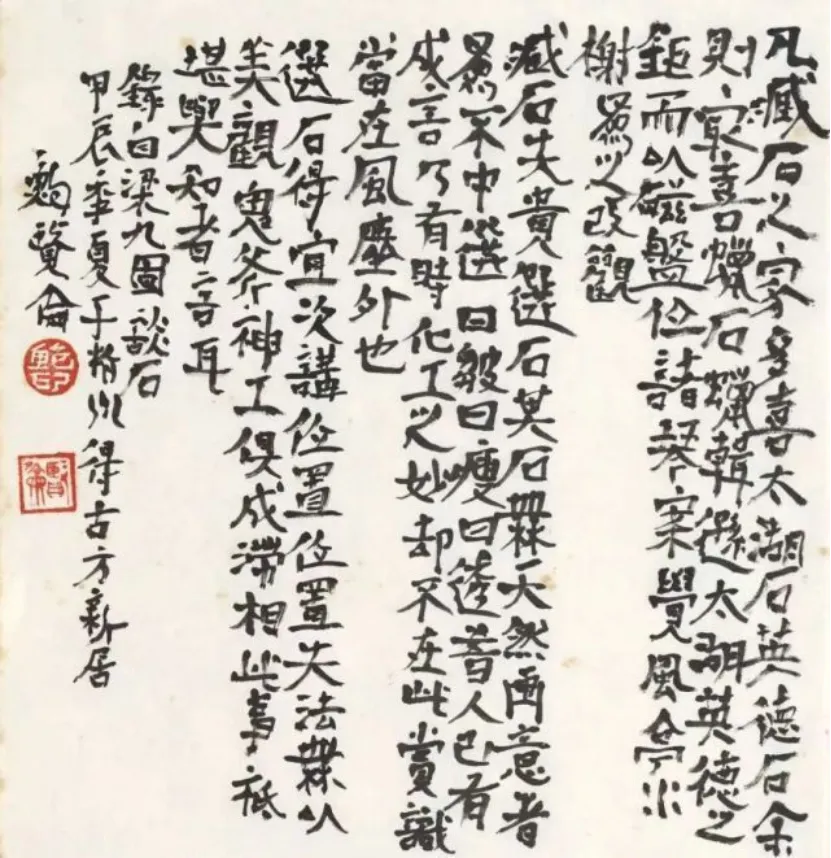 凡藏石之家多喜太湖石英德石余
則㝡喜蠟石蠟遜太湖英德之
鉅而以磁盤位諸琴案覺風亭水
榭爲之改觀
藏石先貴選石其石無天然画意者
爲不中選曰皺曰瘦曰透昔人已有
成言乃有時化工之妙却不在此賞識
當在風塵外也
選石得宜次講位置位置失法無以
美觀鬼斧神工俱成滯相此事祗
堪與知者言耳
錄自梁九圖談石
甲辰季夏于得古方新居
鮑賢倫
鮑印
賢倫